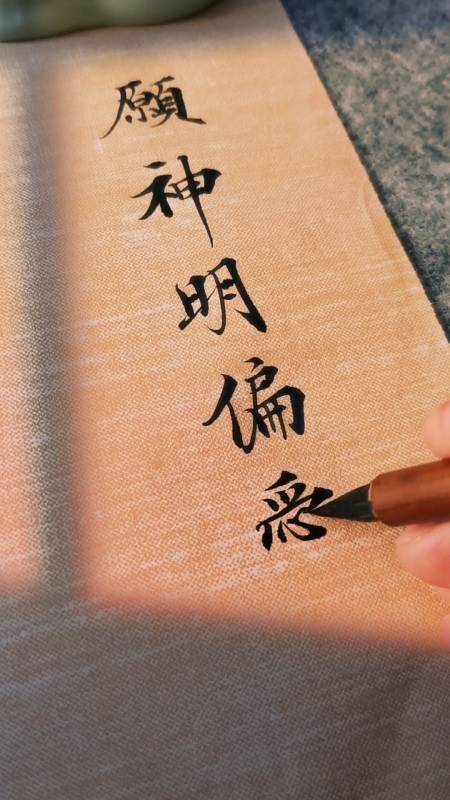 願神明偏愛